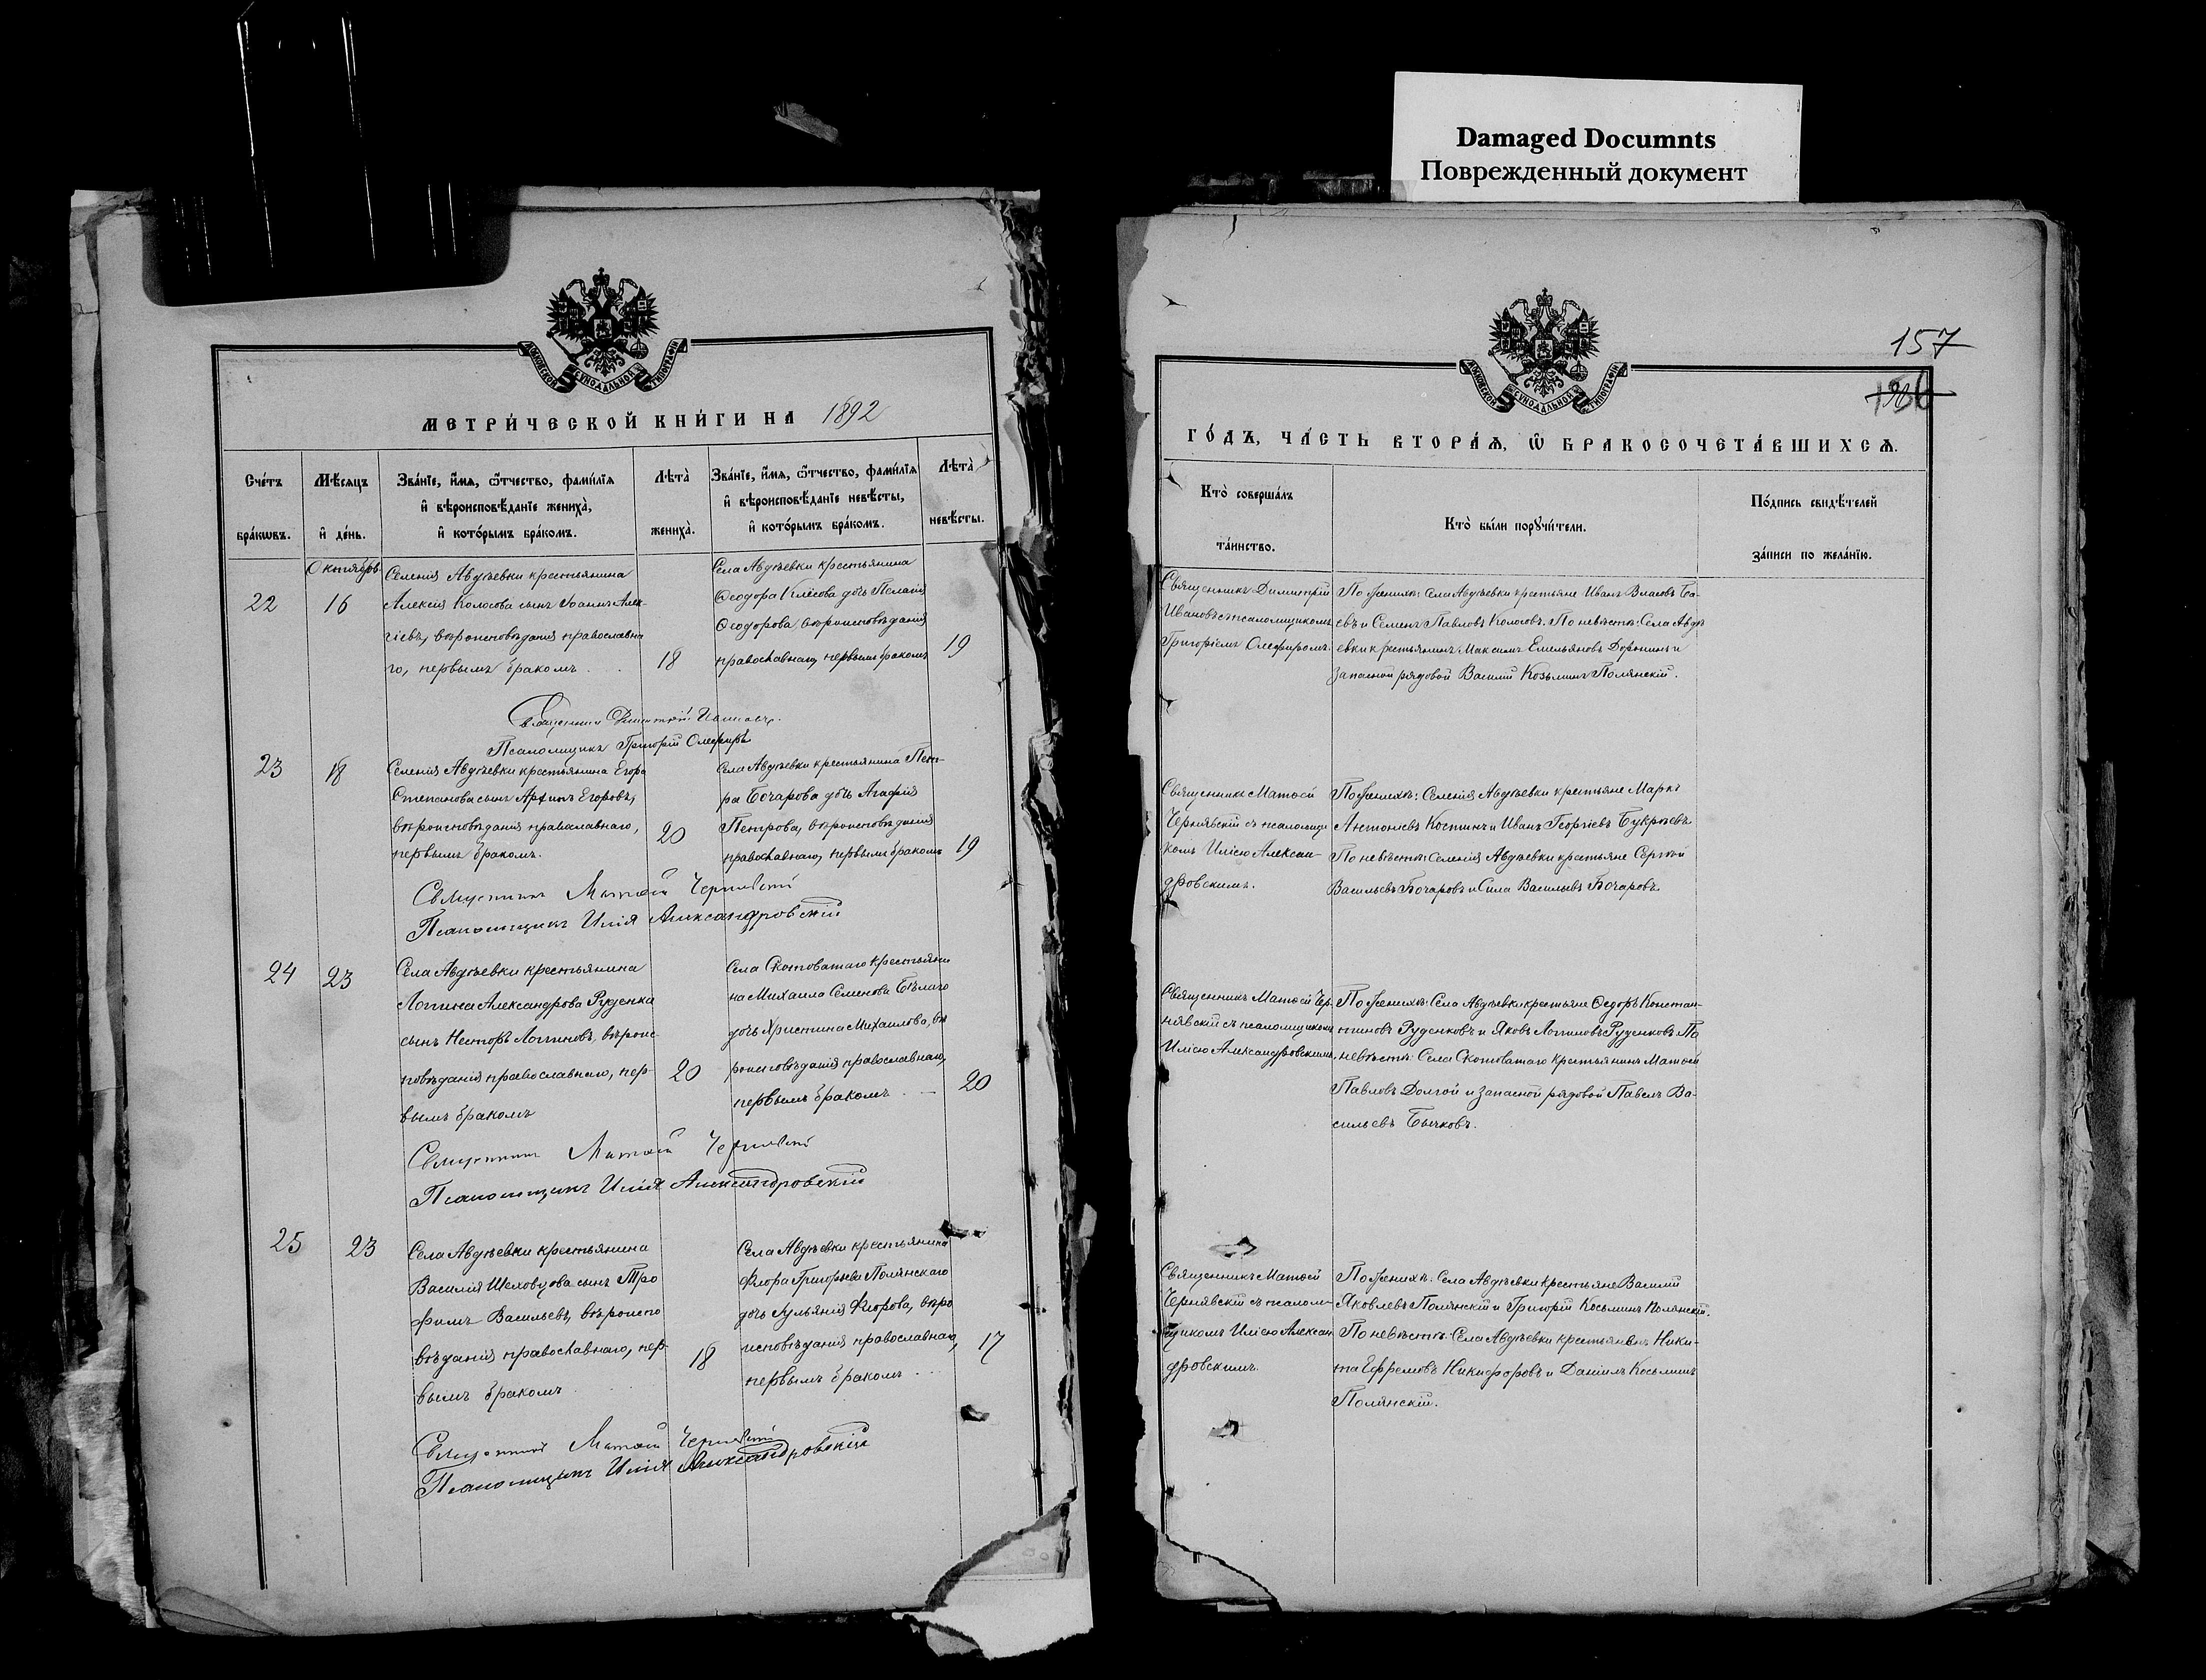 Damaged Documnts
Поврежденный документ
МОСКОВСКОЙ СѴНОДАЛЬНОЙ ТИПОГРАФІИ
МЕТРИ́ЧЕСКОЙ КНИ́ГИ НА 1892
Сче́тъ бра́кѡвъ.
Мѣ́сяцъ и҆ де́нь.
Зва́нїе, и҆́мѧ, ѻ҆́тчество, фами́лїѧ
и҆ вѣроисповѣ́данїе жениха̀,
и҆ кото́рымъ бра́комъ.
Лѣта̀ жениха̀.
Зва́нїе, и҆́мѧ, ѻ҆́тчество, фами́лїѧ
и҆ вѣроисповѣ́данїе невѣ́сты,
и҆ кото́рымъ бра́комъ.
Лѣта̀ невѣ́сты.
Октябрь
22
16
Селенія Авдѣевки крестьянина
Алексія Колосова сынъ Іоаннъ Алек-
сіевъ, вѣроисповѣданія православна
го, первымъ бракомъ
18
Села Авдѣевки крестьянина
Ѳеодора Клёсова дочь Пелагія
Ѳеодорова, вѣроисповѣданія
православнаго, первымъ бракомъ
19
Священникъ Димитрій Ивановъ.
Псаломщикъ Григорій Олефиръ
23
18
Селенія Авдѣевки крестьянина Егора
Степанова сынъ Архипъ Егоровъ,
вѣроисповѣданія православнаго,
первымъ бракомъ.
20
Села Авдѣевки крестьянина Пет-
ра Бочарова дочь Агафія
Петрова, вѣроисповѣданія
православнаго, первымъ бракомъ
19
Священникъ Матѳей Чернявскій
Псаломщикъ Илія Александровскій
24
23
Села Авдѣевки крестьянина
Логгина Александрова Руденка
сынъ Несторъ Логгиновъ, вѣроис-
повѣданія православнаго, пер-
вымъ бракомъ
20
Села Скотоватаго крестьяни
на Михаила Семенова Бѣлаго
дочь Христина Михайлова, вѣ
роисповѣданія православнаго,
первымъ бракомъ
20
Священникъ Матѳей Чернявскій
Псаломщикъ Илія Александровскій
25
23
Села Авдѣевки крестьянина
Василія Шеховцова сынъ Тро
фимъ Васильевъ, вѣроиспо
вѣданія православнаго, пер-
вымъ бракомъ
18
Села Авдѣевки крестьянина
Флора Григорьева Полянскаго
дочь Іульянія Флорова, вѣро
исповѣданія православнаго,
первымъ бракомъ
17
Священникъ Матѳей Чернявскій
Псаломщикъ Илія Александровскій
157
МОСКОВСКОЙ СѴНОДАЛЬНОЙ ТИПОГРАФІИ
ГО́ДЪ, ЧА́СТЬ ВТОРА́Ѧ, Ѽ БРАКОСОЧЕТА́ВШИХСѦ.
Кто̀ соверша́лъ та́инство.
Кто̀ бы́ли порꙋчи́тели.
По́дпись свидѣ́телей
за́писи по жела́нїю.
Священникъ Димитрій
Ивановъ съ псаломщикомъ
Григоріемъ Олефиромъ.
По женихѣ: Села Авдѣевки крестьяне Иванъ Власовъ Ба-
евъ и Семенъ Павловъ Колосовъ. По невѣстѣ: Села Авдѣ
евки крестьянинъ Максимъ Емельяновъ Доронинъ и
запасной рядовой Василій Козьминъ Полянскій.
Священникъ Матѳей
Чернявскій съ псаломщи
комъ Иліею Алексан-
дровскимъ.
По женихѣ: Селенія Авдѣевки крестьяне Маркъ
Антоніевъ Костинъ и Иванъ Георгіевъ Букрѣевъ
По невѣстѣ: Селенія Авдѣевки крестьяне Сергѣй
Васильевъ Бочаровъ и Сила Васильевъ Бочаровъ.
Священникъ Матѳей Чер-
нявскій съ псаломщикомъ
Иліею Александровскимъ.
По женихѣ: Села Авдѣевки крестьяне Ѳедоръ Констан-
тиновъ Руденковъ и Яковъ Логгиновъ Руденковъ. По
невѣстѣ: Села Скотоватаго крестьянинъ Матѳей
Павловъ Долгой и запасной рядовой Павелъ Ва-
сильевъ Бычковъ.
Священникъ Матѳей
Чернявскій съ псалом-
щикомъ Иліею Алексан
дровскимъ.
По женихѣ: Села Авдѣевки крестьяне Василій
Яковлевъ Полянскій и Григорій Косьминъ Полянскій.
По невѣстѣ: Села Авдѣевки крестьяне Ники-
та Ефремовъ Никифоровъ и Даніилъ Косьминъ
Полянскій.